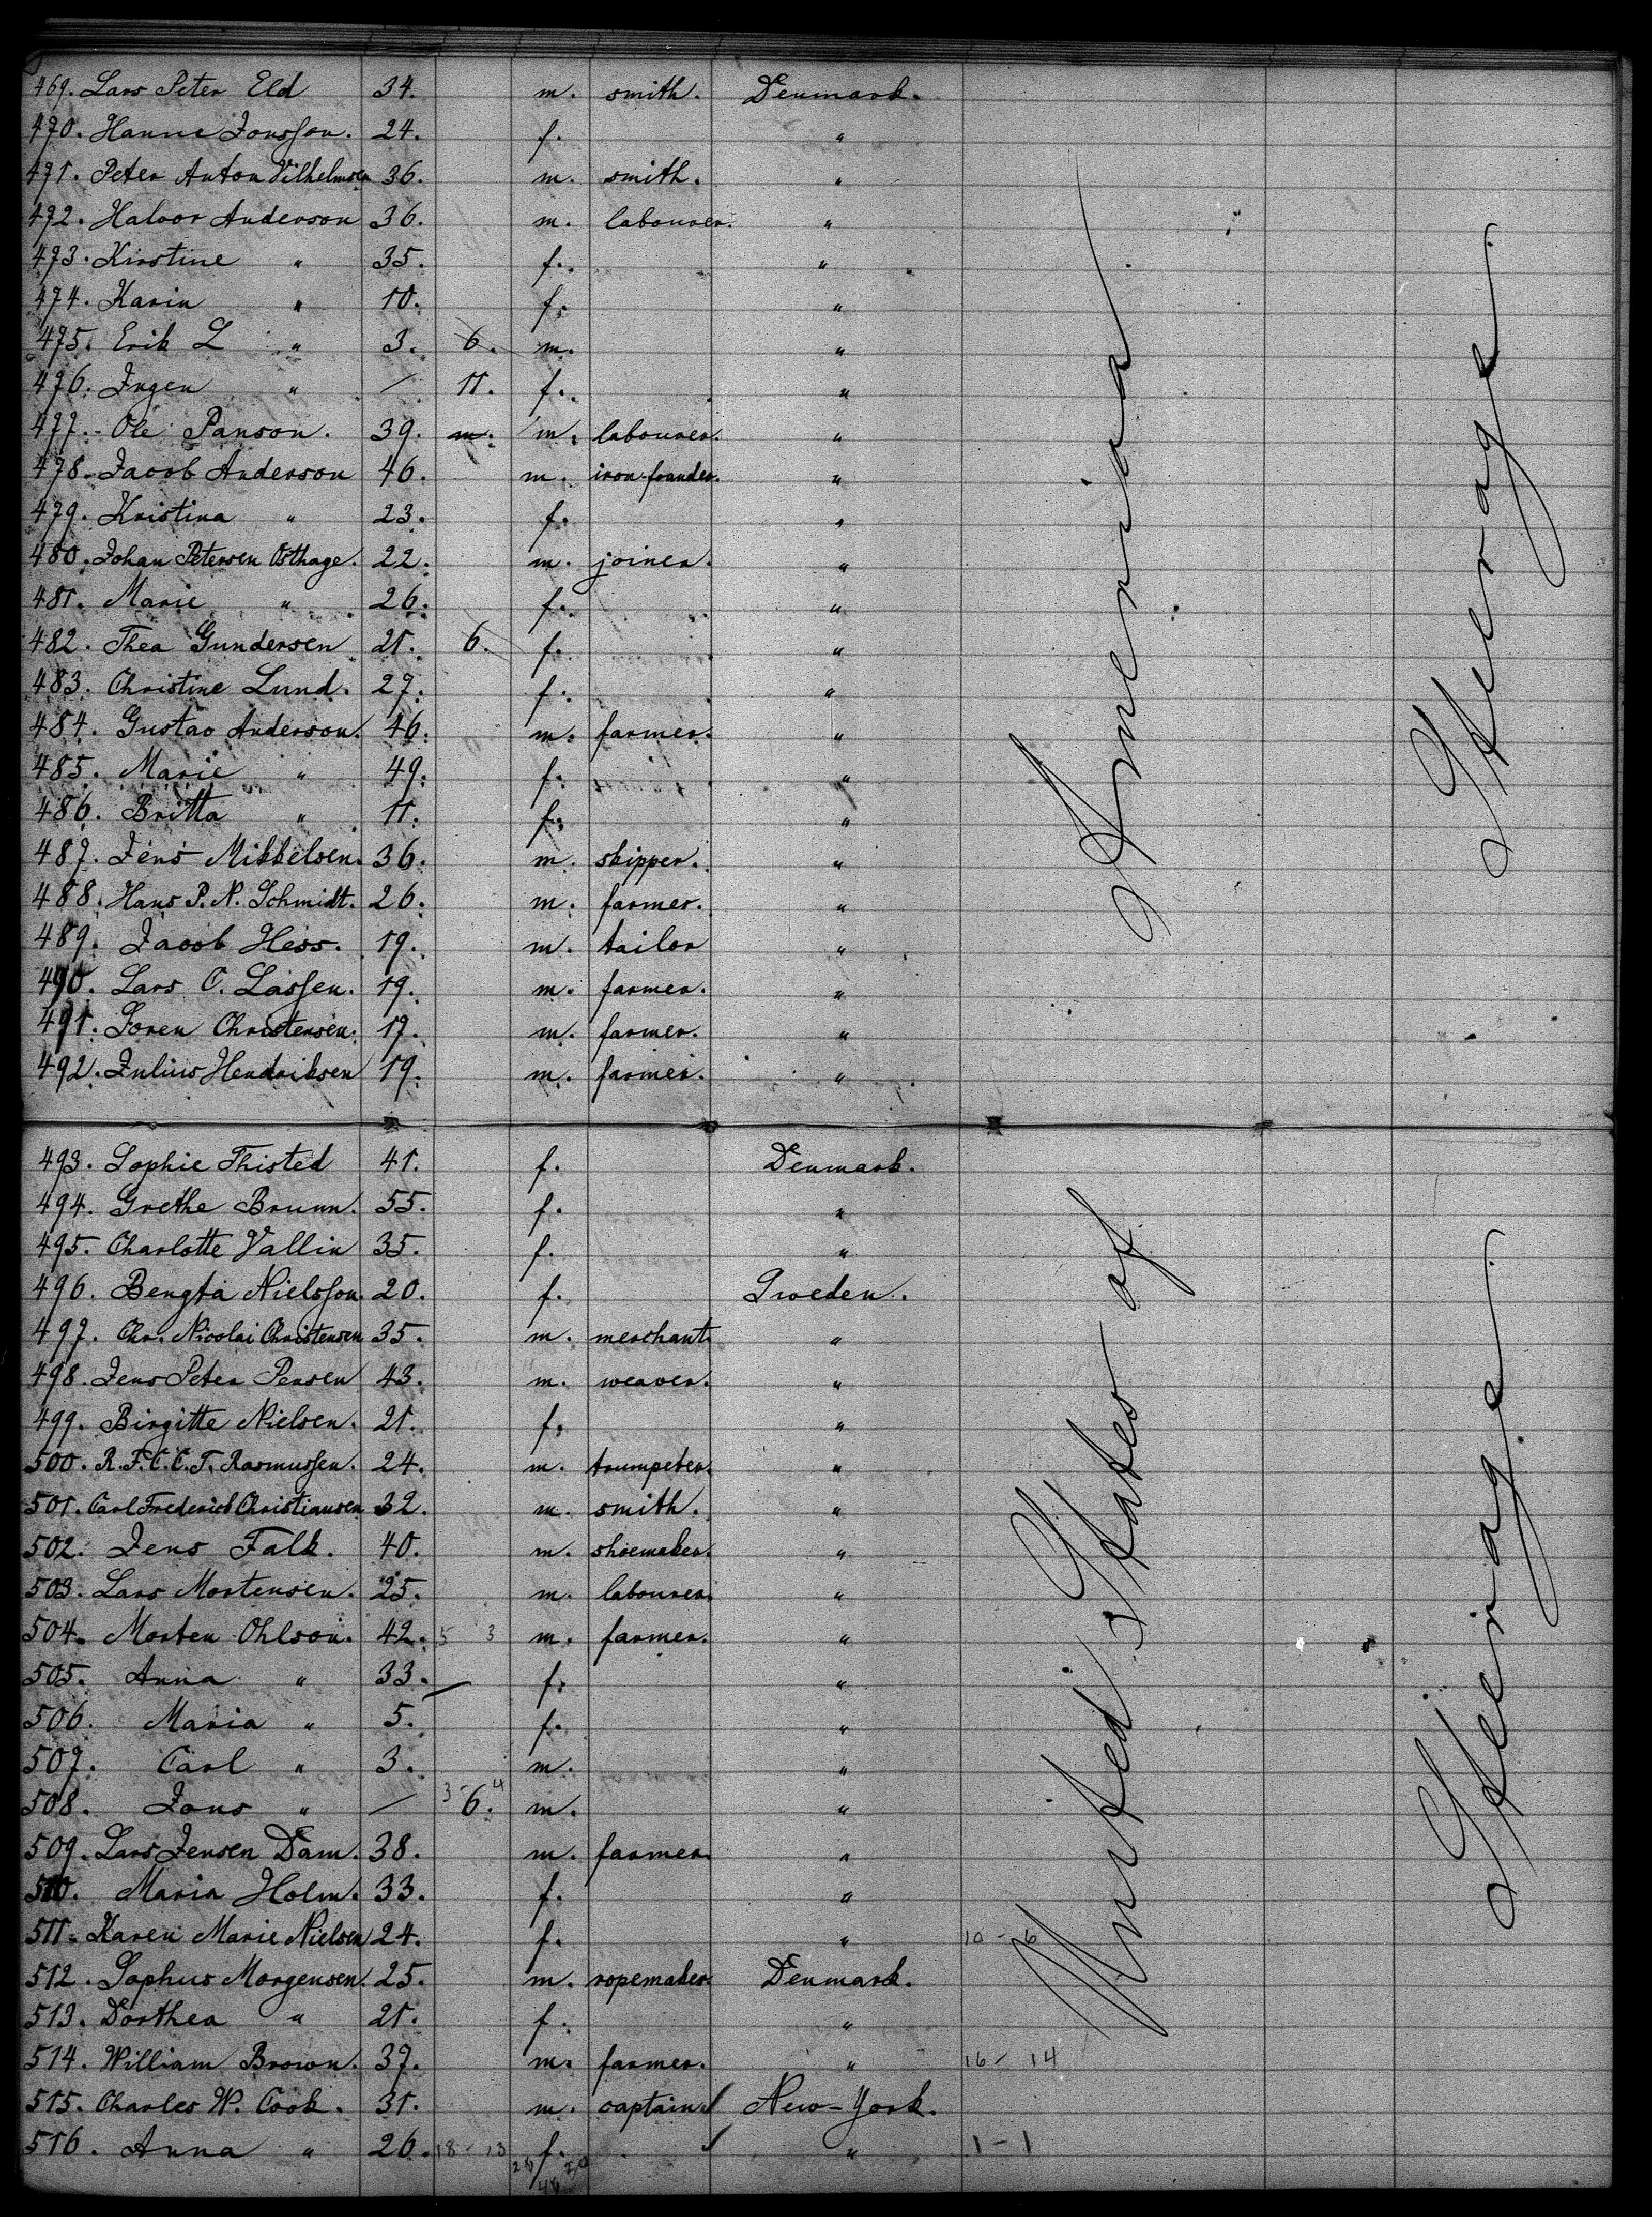 469. Lars Peter Eld 34. m. smith. Denmark.
470. Hanne Jonsson. 24. f. "
471. Peter Anton Vilhelmsen 36. m. smith. "
472. Halvor Anderson 36. m. labourer. "
473. Kirstine " 35. f. "
474. Karin " 10. f. "
475. Erik L " 3. 6. m. "
476. Ingen " / 11. f. "
477. Ole Panson. 39. m. m. labourer. "
478. Jacob Anderson 46. m. iron-founder. "
479. Kristina " 23. f. "
480. Johan Petersen Osthage. 22. m. joiner. "
481. Marie " 26. f. "
482. Thea Gundersen 21. 6. f. "
483. Christine Lund. 27. f. "
484. Gustav Anderson. 46. m. farmer. "
485. Marie " 49. f. "
486. Britta " 11. f. "
487. Jens Mikkelsen. 36. m. skipper. "
488. Hans P. N. Schmidt. 26. m. farmer. "
489. Jacob Hess. 19. m. tailor "
490. Lars C. Lassen. 19. m. farmer. "
491. Soren Christensen. 17. m. farmer. "
492. Julius Hendriksen 19. m. farmer. "
493. Sophie Thisted 41. f. Denmark.
494. Grethe Brunn. 55. f. "
495. Charlotte Vallin 35. f. "
496. Bengta Nielsson. 20. f. Sweden.
497. Chr. Nicolai Christensen 35. m. merchant. "
498. Jens Peter Pensen 43. m. weaver. "
499. Birgitte Nielsen. 21. f. "
500. R. F. C. C. T. Rasmussen. 24. m. trumpeter. "
501. Carl Frederick Christiansen 32. m. smith. "
502. Jens Falk. 40. m. shoemaker. "
503. Lars Mortensen. 25. m. labourer. "
504. Morten Ohlson. 42. 5 3 m. farmer. "
505. Anna " 33. f. "
506. Maria " 5. f. "
507. Carl " 3. m. "
508. Jons " / 3 - 4 6. m. "
509. Lars Jensen Dam. 38. m. farmer. "
510. Maria Holm. 33. f. "
511. Karen Marie Nielsen 24. f. " 10 - 6
512. Sophus Morgensen. 25. m. ropemaker. Denmark.
513. Dorthea " 21. f. "
514. William Brown. 37. m. farmer. " 16 - 14
515. Charles W. Cook. 31. m. captain. New-York.
516. Anna " 26. 18 - 13 f. " 1 - 1
United States of America
Steerage
Steerage